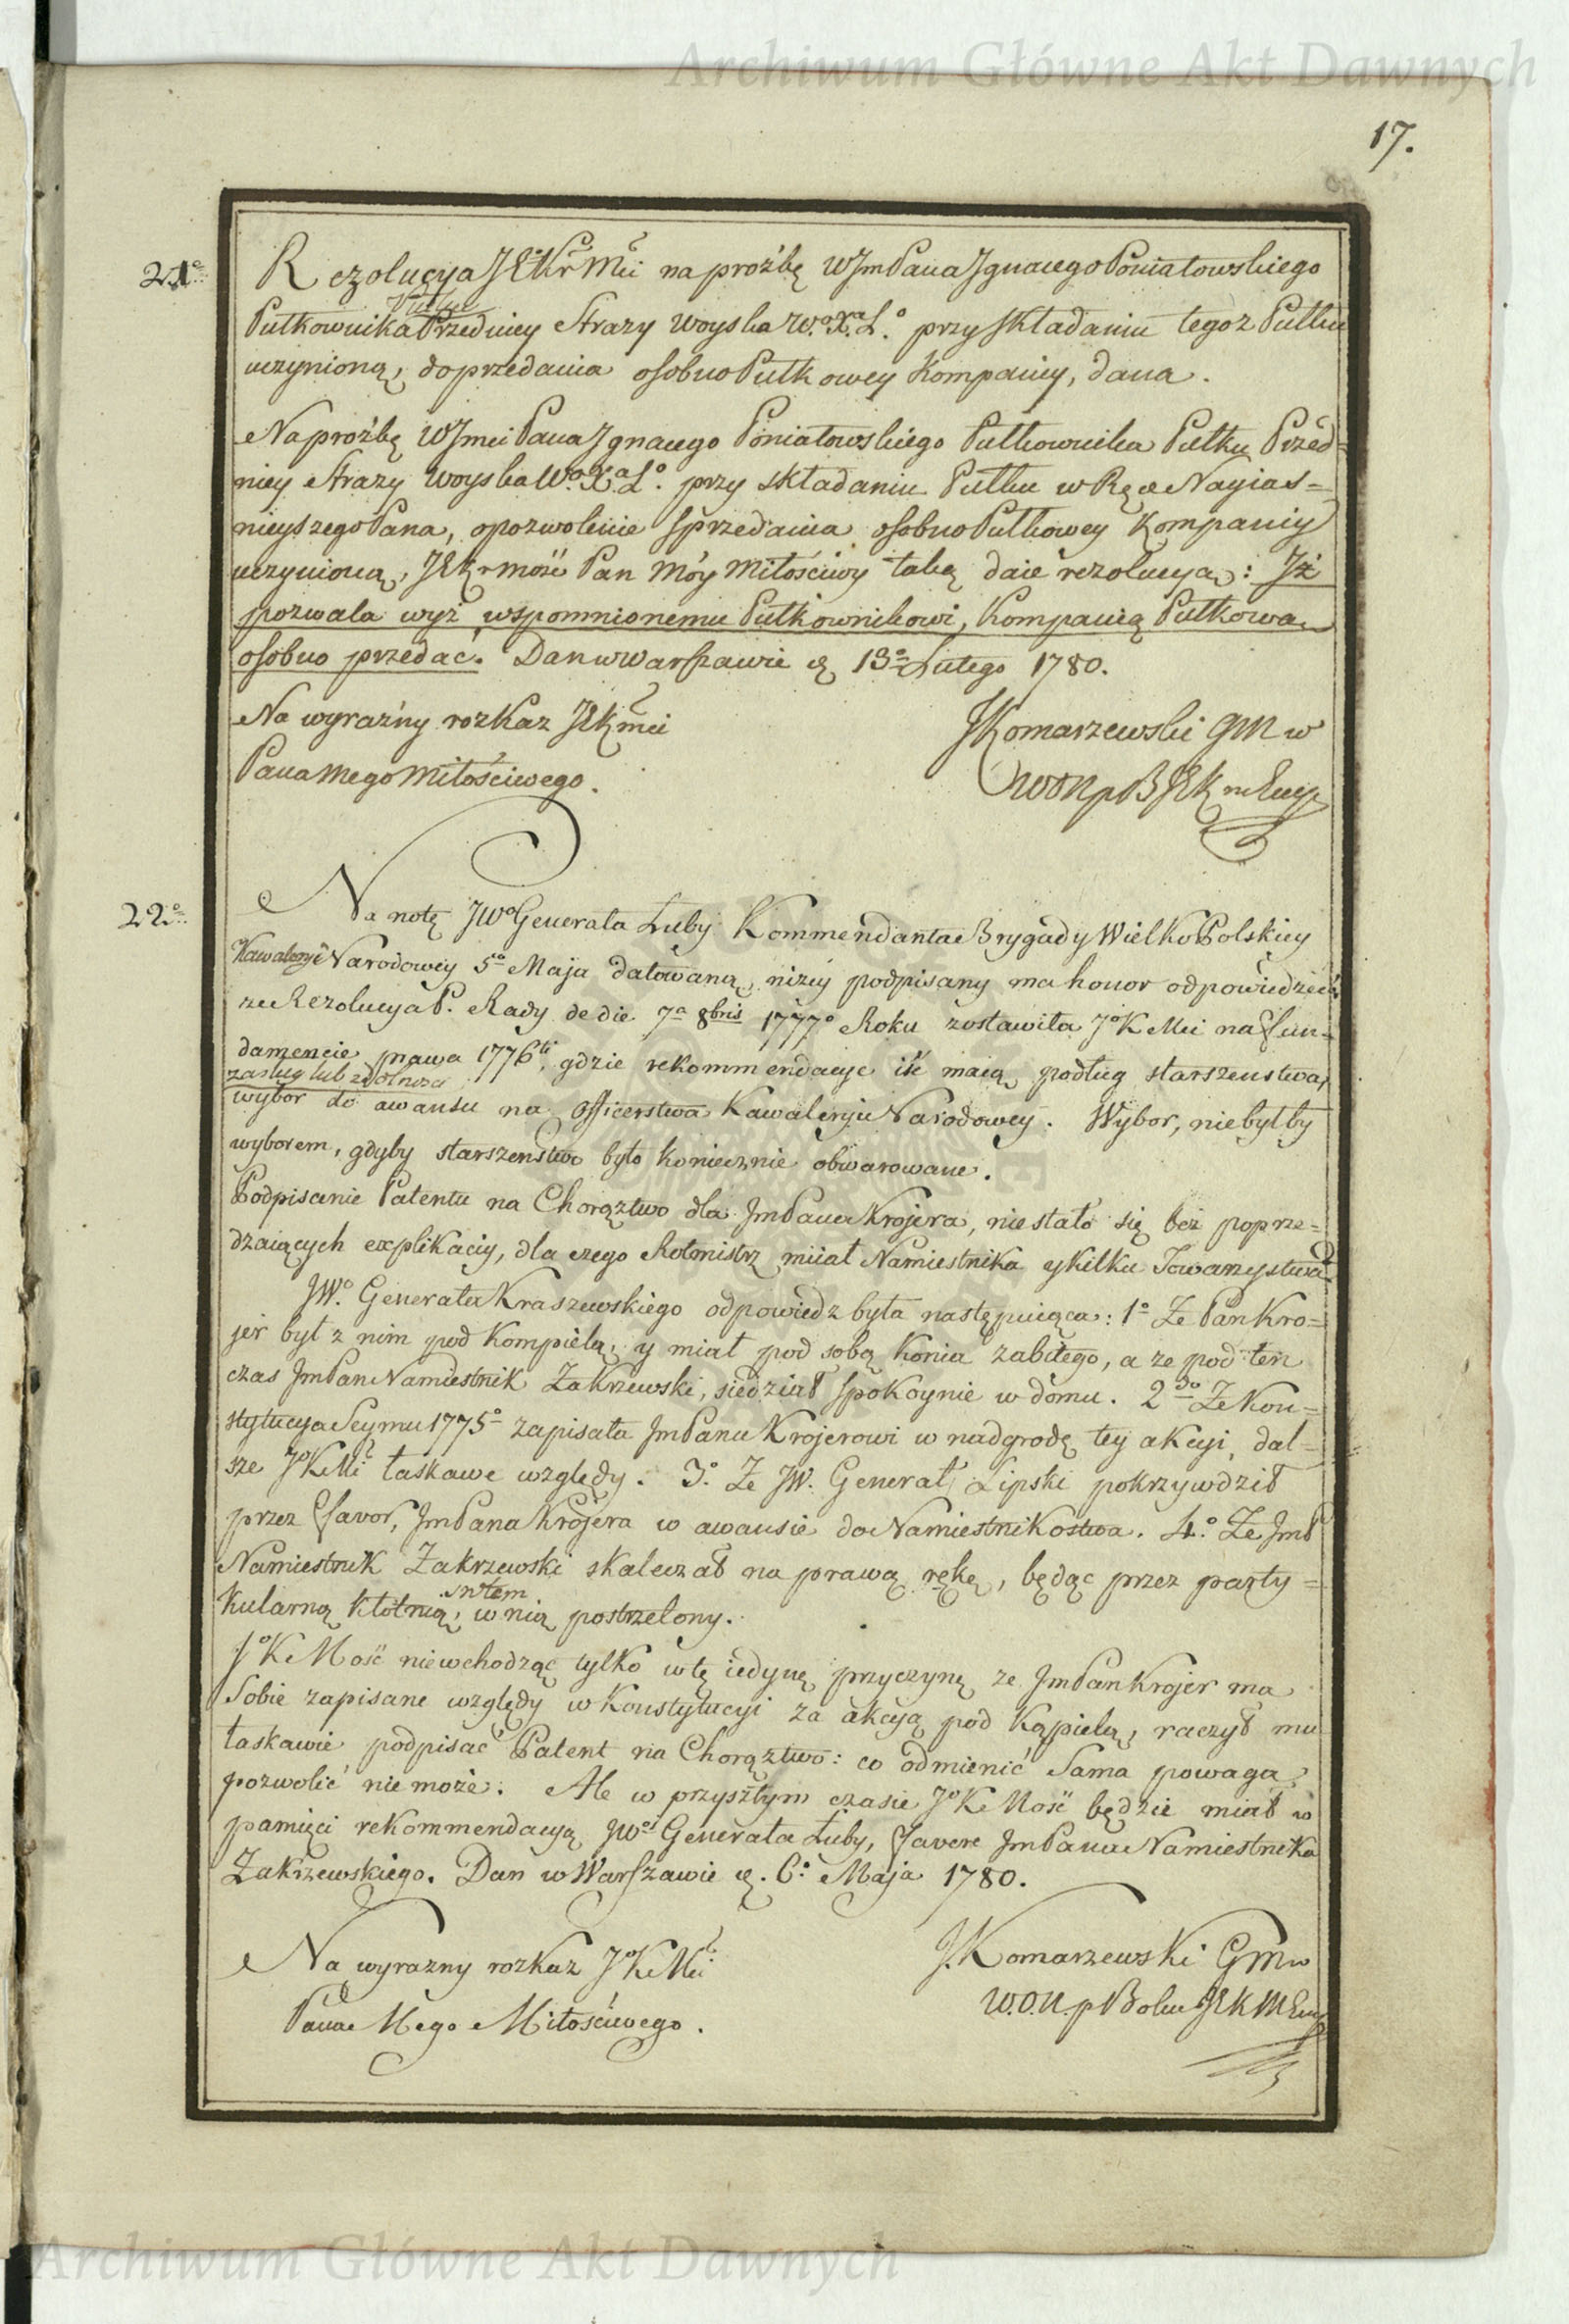 Archiwum Główne Akt Dawnych
17.
21º
Rezolucya JEKrMci na proźbę WJmPana Jgnacego Poniatowskiego
Pułku
Pułkownika Przedniey Strazy Woyska W.º X.ª L.º przy składaniu tegoz Pułku
uczynioną, do przedania osobno Pułkowey Kompaniey, dana.
Na proźbę WJmci Pana Jgnacego Poniatowskiego Pułkownika Pułku Przed=
niey Strazy Woyska W.º X.ª L.º przy składaniu Pułku w Ręce Nayias=
nieyszego Pana, o pozwolenie sprzedania osobno Pułkowey Kompaniy
uczynioną, JEKrmość Pan Móy Miłościwy taką daie rezolucyą: Jż
pozwala wyż wspomnionemu Pułkownikowi, Kompanią Pułkową
osobno przedać. Dan w Warszawie d. 13º Lutego 1780.
Na wyraźny rozkaz JEKmci
Pana mego Miłościwego.
JKomarzewski GM w
WON p B JEK m Ewp
22º
Na notę JWº Generała Łuby Kommendanta Brygady WielkoPolskiey
Kawaleryi Narodowey 5º Maja datowaną, niżey podpisany ma honor odpowiedzieć,
ze Rezolucya P. Rady de die 7ª 8bris 1777º Roku zostawiła JºKMci na Fun=
damencie prawa 1776ti, gdzie rekommendacye iść maią podług starszenstwa,
zasług lub zdolnosci
wybor do awansu na officerstwa Kawaleryi Narodowey. Wybor, niebyłby
wyborem, gdyby starszenstwo było koniecznie obwarowane.
Podpisanie Patentu na Chorąztwo dla JmPana Krojera, nie stało się bez poprze=
dzaiących explikaciy, dla czego Rotmistrz miiał Namiestnika y kilku Towarzystwa.
JW.º Generała Kraszewskiego odpowiedz była następuiąca: 1º Ze Pan Kro=
jer był z nim pod Kompielą, y miał pod sobą konia zabitego, a ze pod ten
czas JmPan Namiestnik Zakrzewski, siedział spokoynie w domu. 2do Ze Kon=
stytucya Seymu 1775º zapisała JmPanu Krojerowi w nadgrodę tey akcyi, dal=
sze JºKMci łaskawe względy. 3º Ze JW. Generał Lipski pokrzywdził
przez Favor, JmPana Krojera w awansie do Namiestnikostwa. 4.º Ze JmP
Namiestnik Zakrzewski skaleczał na prawą rękę, będąc przez party=
kularną kłotnią, w nią postrzelony.
JºKMość niewchodząc tylko w tę iedynę przyczynę ze JmPan Krojer ma
Sobie zapisane względy w Konstytucyi za akcyą pod Kąpielą, raczył mu
łaskawie podpisać Patent na Chorąztwo: co odmienić Sama powaga
pozwolić nie może. Ale w przyszłym czasie JºKMość będzie miał w
pamięci rekommendacyą JWº Generała Łuby, Favore JmPana Namiestnika
Zakrzewskiego. Dan w Warszawie d. 6.º Maja 1780.
Na wyrazny rozkaz JºKMci
Pana Mego Miłościwego.
J.Komarzewski GM w
W.O.N. p B JEKM
Archiwum Główne Akt Dawnych